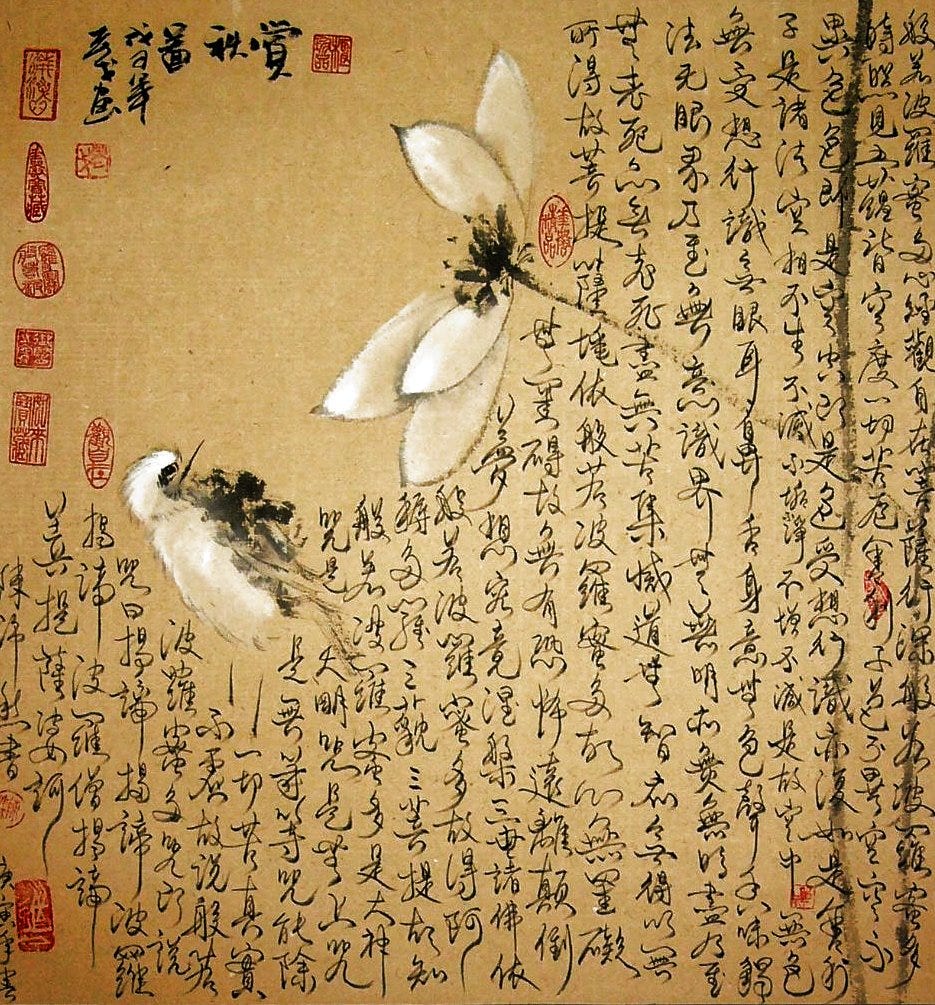 般若波羅蜜多心經觀自在菩薩行深般若波羅蜜多
時照見五蘊皆空度一切苦厄舍利子色不異空空不
異色色即是空空即是色受想行識亦復如是舍利
子是諸法空相不生不滅不垢淨不增不減是故空中無色
無受想行識無眼耳鼻舌身意無色聲香味觸
法无眼界乃至無意識界無無明亦無無明盡乃至
無老死亦無老死盡無苦集滅道無智亦無得以無
所得故菩提薩埵依般若波羅蜜多故心無罣礙
無罣礙故無有恐怖遠離顛倒
夢想究竟涅槃三世諸佛依
般若波羅蜜多故得阿
耨多羅三藐三菩提故知
般若波羅蜜多是大神
咒是大明咒是無上咒
是無等等咒能除
一切苦真實
不虛故說般若
波羅蜜多咒即說
咒曰揭諦揭諦波羅
揭諦波羅僧揭諦
菩提薩婆訶
書
賞秋圖
畫
觀自在